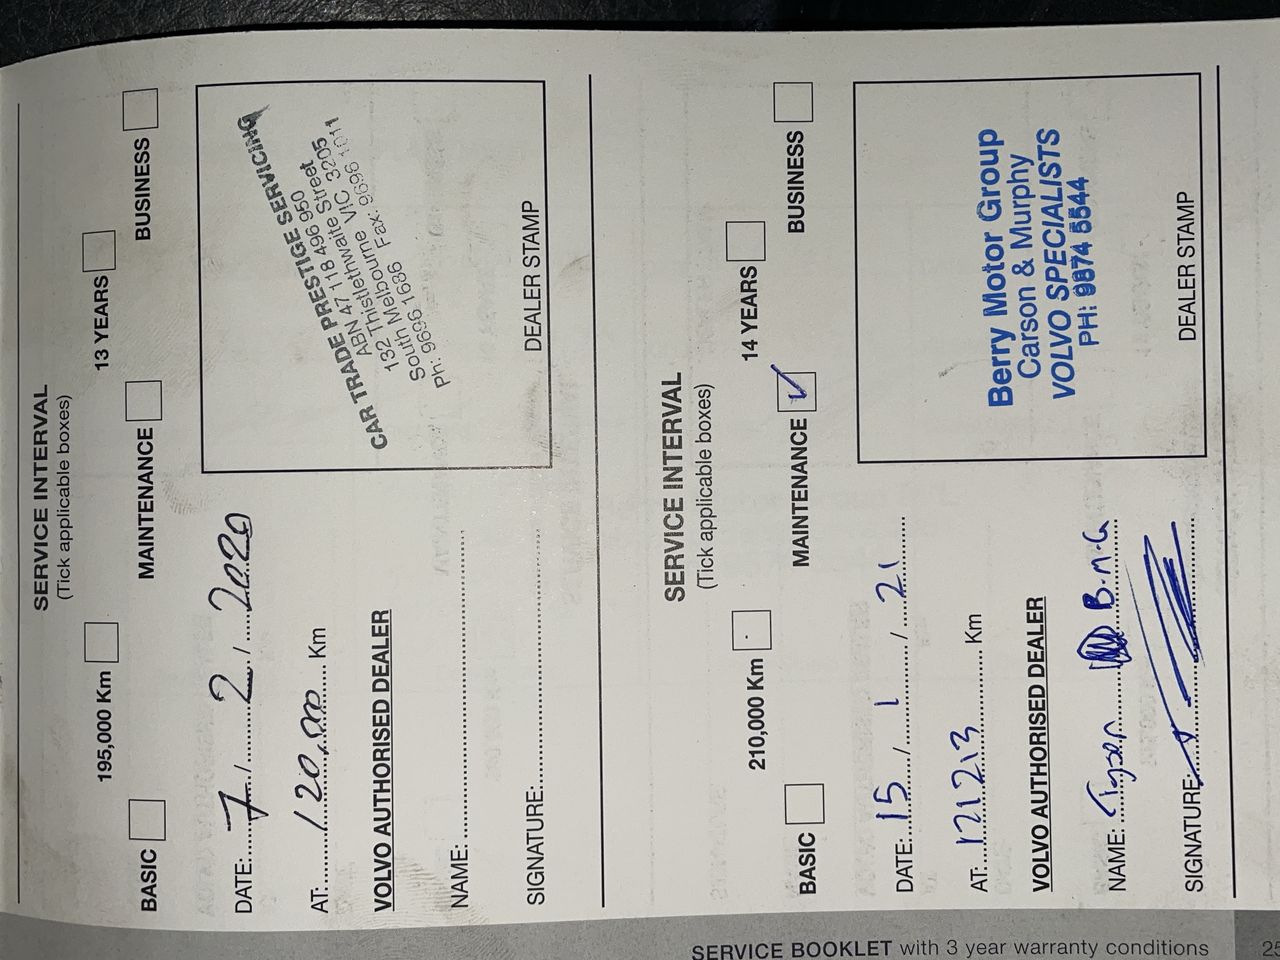 SERVICE INTERVAL
(Tick applicable boxes)
195,000 Km 13 YEARS
BASIC MAINTENANCE BUSINESS
DATE: 7 / 2 / 2020
AT: 120,000 Km
VOLVO AUTHORISED DEALER
NAME:
SIGNATURE:
CAR TRADE PRESTIGE SERVICING
ABN 47 118 496 950
132 Thistlethwaite Street
South Melbourne VIC 3205
Ph: 9696 1636 Fax: 9696 1011
DEALER STAMP
SERVICE INTERVAL
(Tick applicable boxes)
210,000 Km 14 YEARS
BASIC MAINTENANCE ✓ BUSINESS
DATE: 15 / 1 / 21
AT: 121213 Km
VOLVO AUTHORISED DEALER
NAME: Tysen B.M.G
SIGNATURE:
Berry Motor Group
Carson & Murphy
VOLVO SPECIALISTS
PH: 9874 5544
DEALER STAMP
SERVICE BOOKLET with 3 year warranty conditions 25